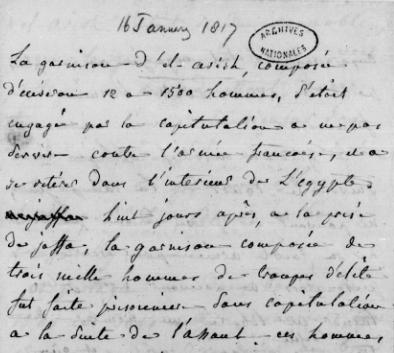 16 Janvier 1817
ARCHIVES NATIONALES
La garnison d'El-arich, composée
d'environ 12 a 1500 hommes, s'etoit
engagé par la capitulation a ne pas
servir contre l'armée francoise, et a
se retirer dans l'interieur de L'egypte.
huit jours après, a la prise
de jaffa, la garnison composée de
trois mille hommes de troupes d'elite
fut faite prisonniere sans capitulation
a la suite de l'assaut. ces hommes,